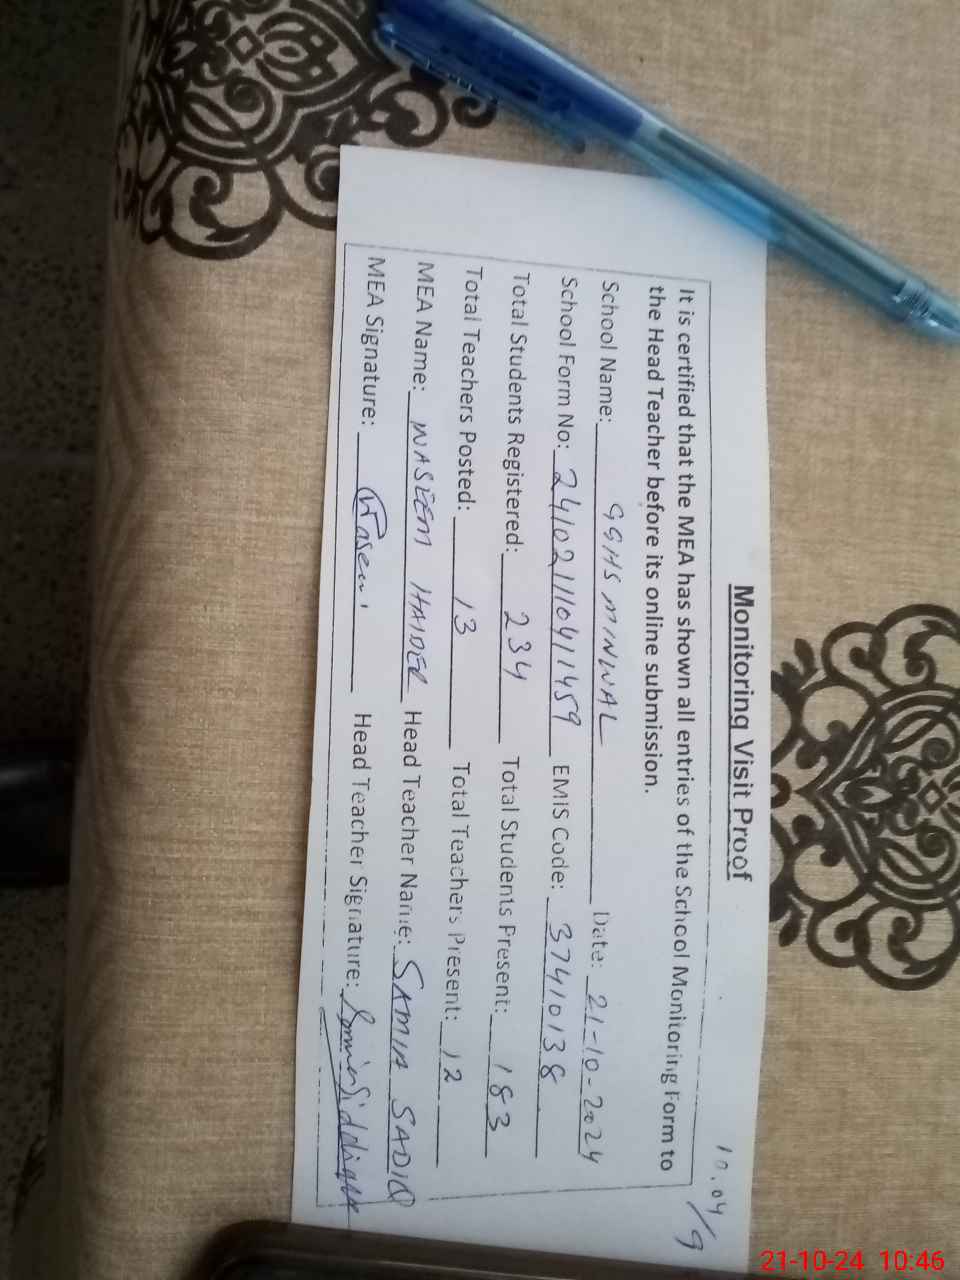 10.04/9
Monitoring Visit Proof
It is certified that the MEA has shown all entries of the School Monitoring Form to
the Head Teacher before its online submission.
School Name: GGHS MINWAL Date: 21-10-2024
School Form No: 241021110411459 EMIS Code: 37410138
Total Students Registered: 234 Total Students Present: 183
Total Teachers Posted: 13 Total Teachers Present: 12
MEA Name: NASEEM HAIDER Head Teacher Name: SAMIA SADIQ
MEA Signature: Head Teacher Signature:
21-10-24 10:46